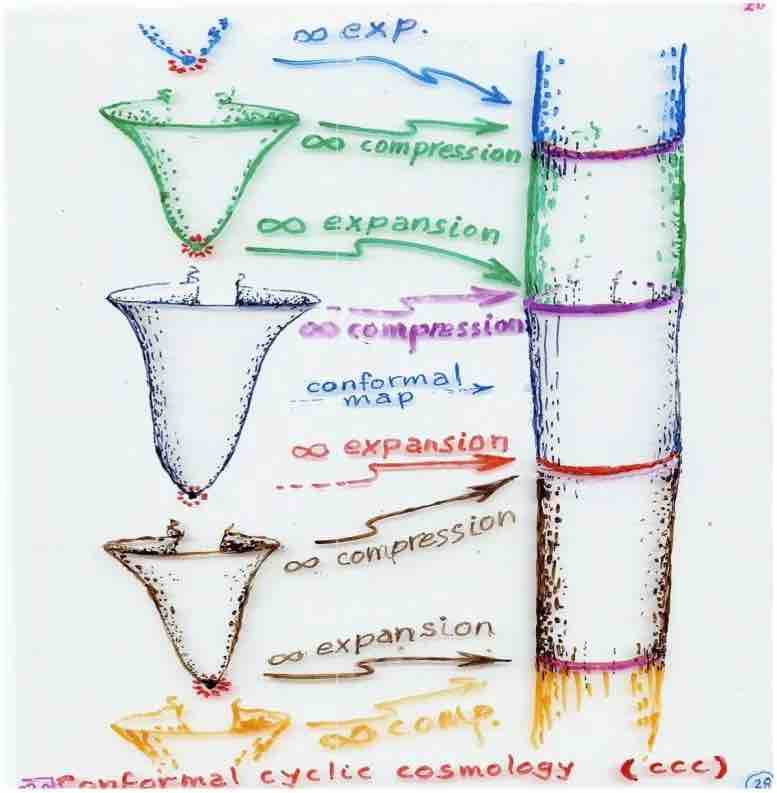 ∞ exp.
∞ compression
∞ expansion
∞ compression
conformal
map
∞ expansion
∞ compression
∞ expansion
∞ comp.
Conformal cyclic cosmology (CCC)